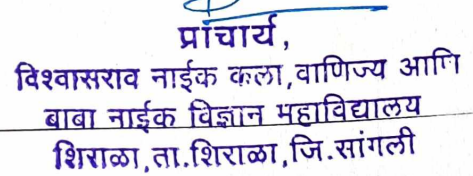 प्राचार्य,
विश्वासराव नाईक कला,वाणिज्य आणि
बाबा नाईक विज्ञान महाविद्यालय
शिराळा,ता.शिराळा,जि.सांगली